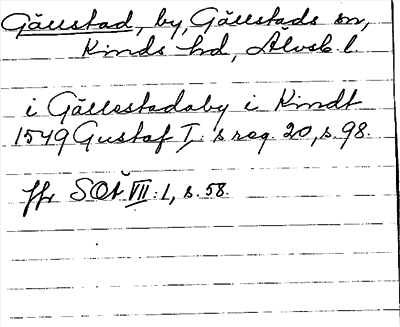 Gällstad, by, Gällstads sn,
Kinds hd, Älvsb. l.
i Gällestadaby i Kindt
1549 Gustaf I:s reg. 20, s. 98.
Jfr SOÄ VII:1, s. 58.